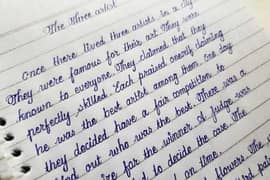 The three artist
Once there lived three artists in a city
They were famous for their art. They were
known to everyone. They claimed that they
perfectly skilled. Each praised oneself claiming
he was the best artist among them. One day
they decided have a fair competition to
out who is the best. There was a
for the winner. A judge was
to decide the case. The
on time.
flowers. The